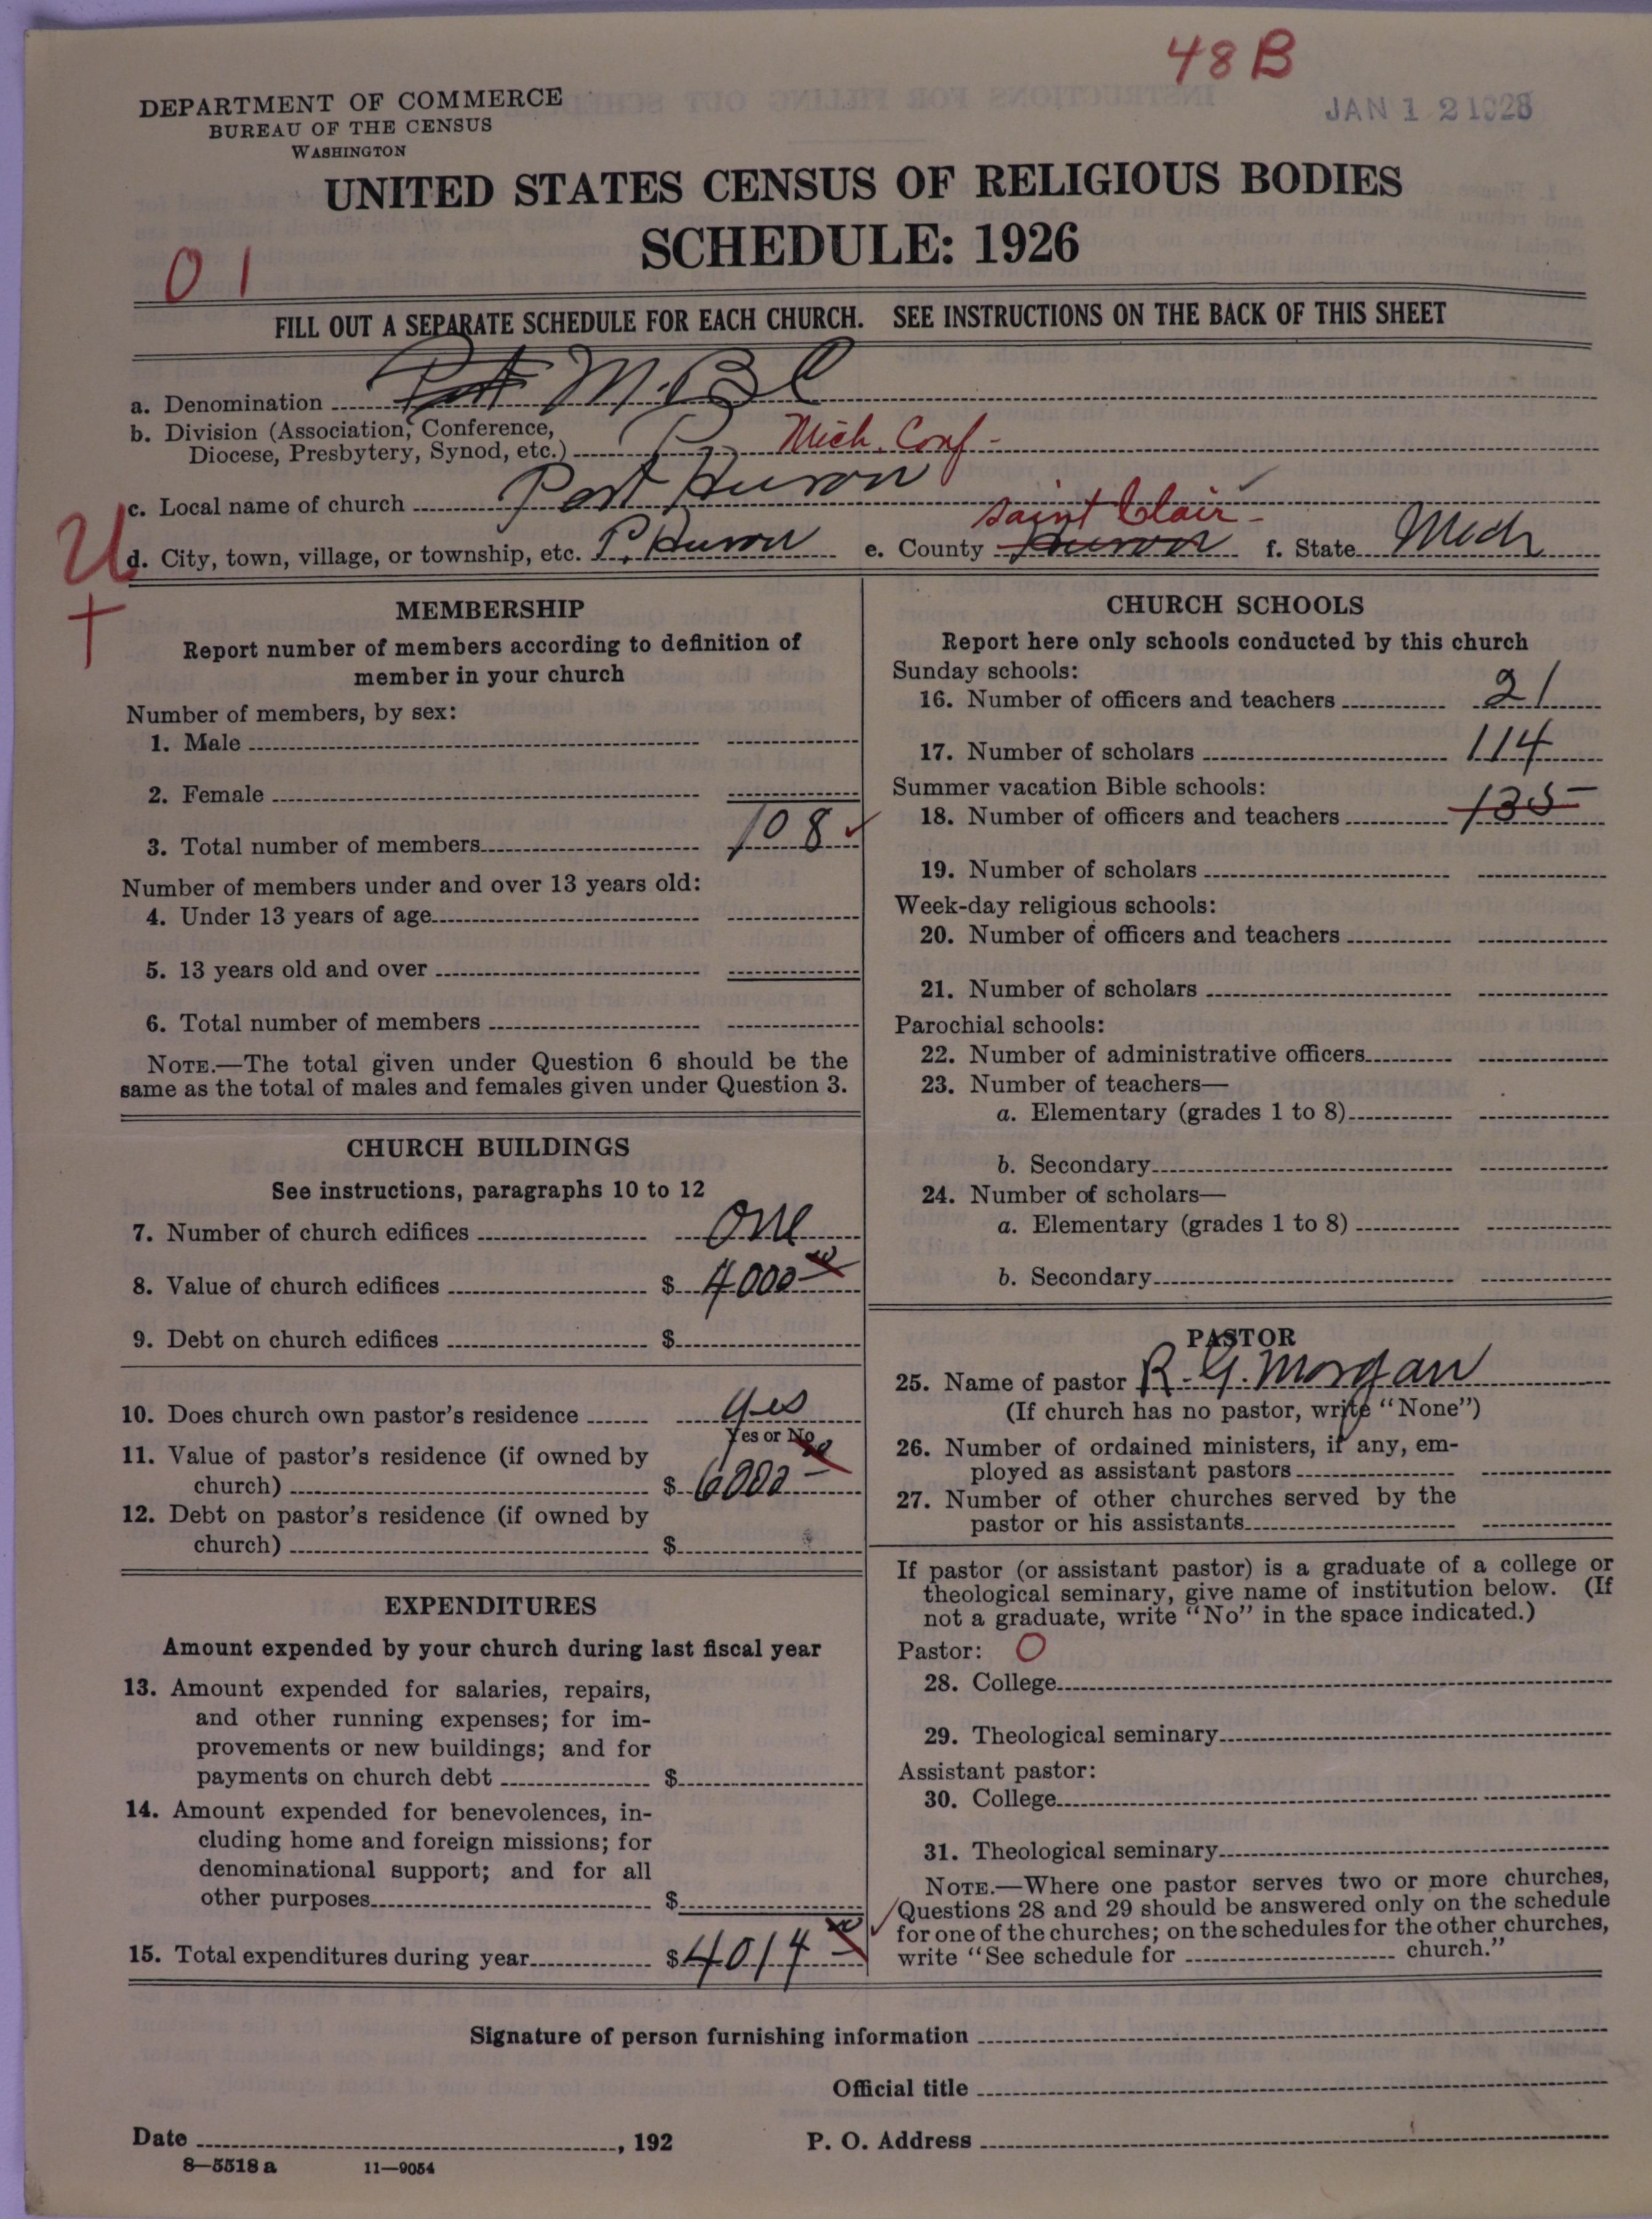 48 B
DEPARTMENT OF COMMERCE
BUREAU OF THE CENSUS
WASHINGTON
JAN 12 1928
UNITED STATES CENSUS OF RELIGIOUS BODIES
SCHEDULE: 1926
01
FILL OUT A SEPARATE SCHEDULE FOR EACH CHURCH. SEE INSTRUCTIONS ON THE BACK OF THIS SHEET
a. Denomination M. B. C
b. Division (Association, Conference,
Diocese, Presbytery, Synod, etc.) Mich. Conf-
c. Local name of church Port Huron
U d. City, town, village, or township, etc. P. Huron e. County Huron Saint Clair- f. State Mich
MEMBERSHIP
Report number of members according to definition of
member in your church
Number of members, by sex:
1. Male
2. Female
3. Total number of members 108
Number of members under and over 13 years old:
4. Under 13 years of age
5. 13 years old and over
6. Total number of members
NOTE.—The total given under Question 6 should be the
same as the total of males and females given under Question 3.
CHURCH BUILDINGS
See instructions, paragraphs 10 to 12
7. Number of church edifices one
8. Value of church edifices $ 4000
9. Debt on church edifices $
10. Does church own pastor's residence yes
Yes or No
11. Value of pastor's residence (if owned by
church) $ 6000
12. Debt on pastor's residence (if owned by
church) $
EXPENDITURES
Amount expended by your church during last fiscal year
13. Amount expended for salaries, repairs,
and other running expenses; for im-
provements or new buildings; and for
payments on church debt $
14. Amount expended for benevolences, in-
cluding home and foreign missions; for
denominational support; and for all
other purposes $
15. Total expenditures during year $ 4014
CHURCH SCHOOLS
Report here only schools conducted by this church
Sunday schools:
16. Number of officers and teachers 21
17. Number of scholars 114
Summer vacation Bible schools:
18. Number of officers and teachers 135
19. Number of scholars
Week-day religious schools:
20. Number of officers and teachers
21. Number of scholars
Parochial schools:
22. Number of administrative officers
23. Number of teachers—
a. Elementary (grades 1 to 8)
b. Secondary
24. Number of scholars—
a. Elementary (grades 1 to 8)
b. Secondary
PASTOR
25. Name of pastor R. G. Morgan
(If church has no pastor, write "None")
26. Number of ordained ministers, if any, em-
ployed as assistant pastors
27. Number of other churches served by the
pastor or his assistants
If pastor (or assistant pastor) is a graduate of a college or
theological seminary, give name of institution below. (If
not a graduate, write "No" in the space indicated.)
Pastor: O
28. College
29. Theological seminary
Assistant pastor:
30. College
31. Theological seminary
NOTE.—Where one pastor serves two or more churches,
Questions 28 and 29 should be answered only on the schedule
for one of the churches; on the schedules for the other churches,
write "See schedule for church."
Signature of person furnishing information
Official title
Date , 192
P. O. Address
8—5518 a 11—9054